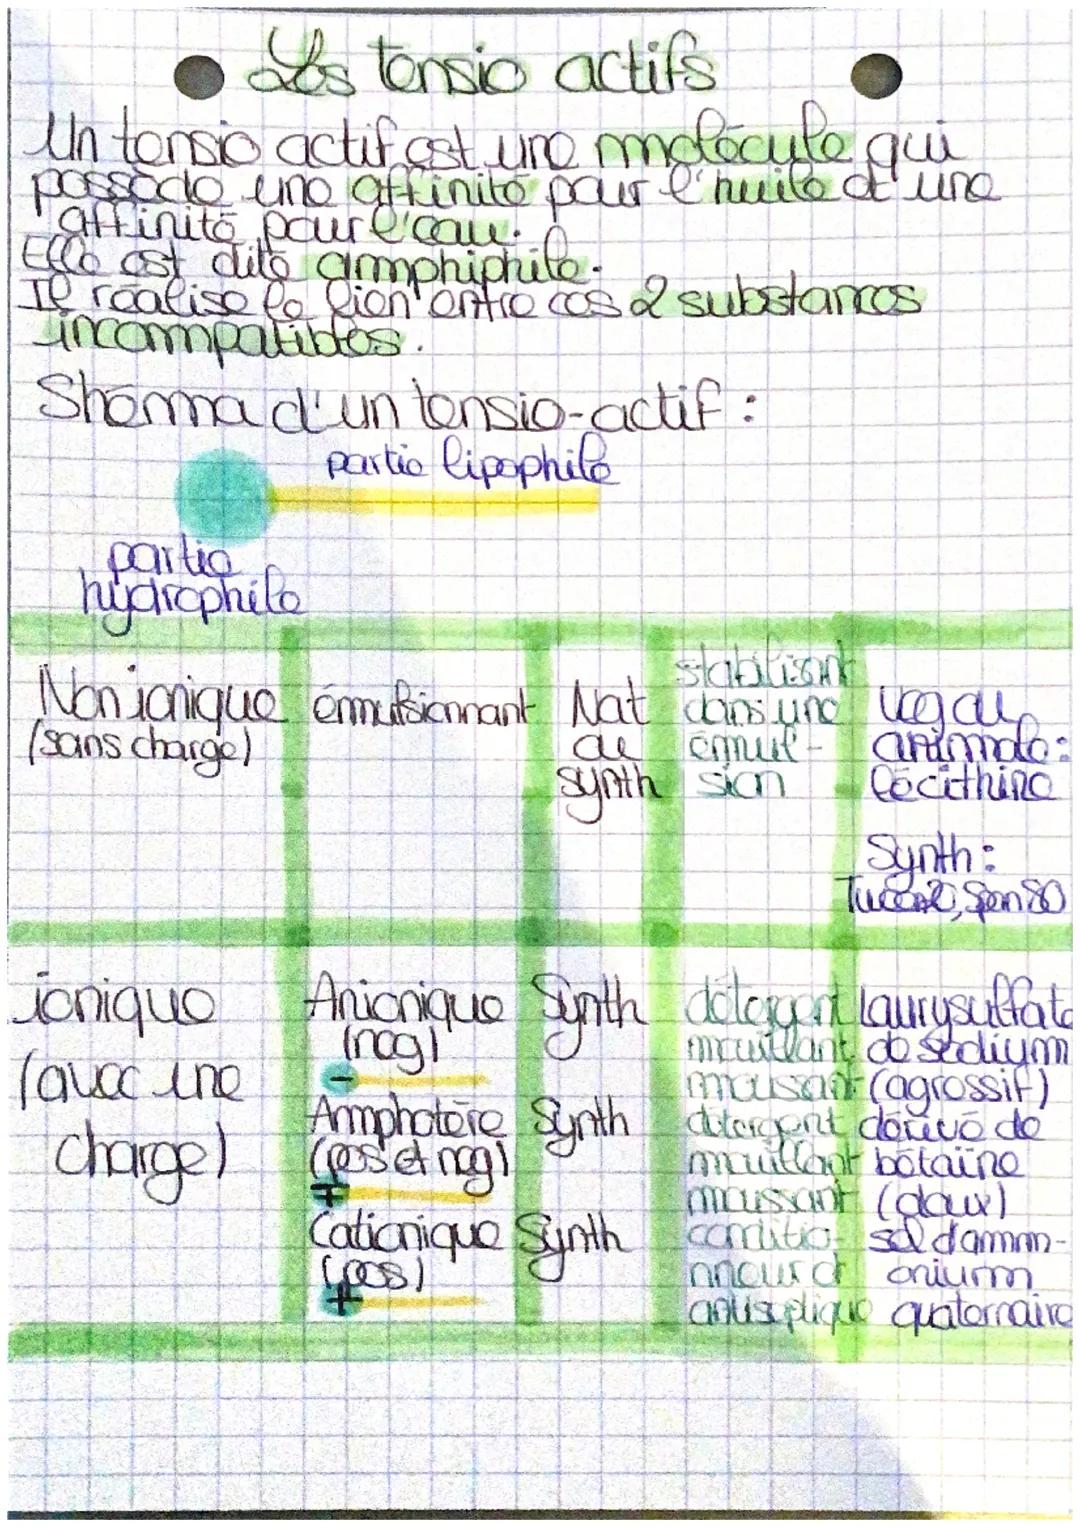 Les tensio actifs
Un tensio actif est une molécule qui
possède une affinité pour l'huile et une
affinité pour l'eau.
Elle est dite amphiphile.
Il réalise le lien entre ces 2 substances
incompatibles.
Shéma d'un tensio-actif :
partie lipophile
partie
hydrophile
Non ionique
(sans charge)
émulsionnant
Nat
ou
synth
stabilisant
dans une
émul-
sion
Veg ou
animale :
lécithine
Synth :
Span 80
ionique
(avec une
charge)
Anionique
(neg)
-
Synth
détergent
mouillant
moussant
Laurysulfate
de sodium
(agressif)
Amphotère
(pos et neg)
Synth
détergent
mouillant
moussant
dérivé de
bétaïne
(doux)
Cationique
(pos)
+
Synth
conditio-
nneur et
antiseptique
sel d'amm-
onium
quaternaire